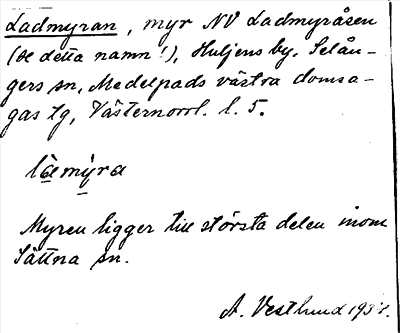 Ladmyran, myr NV Ladmyråsen
(se detta namn!), Huljens by, Selån-
gers sn, Medelpads västra domsa-
gas tg, Västernorrl. l. 5.
lamýra
Myren ligger till största delen inom
Sättna sn.
A. Vestlund